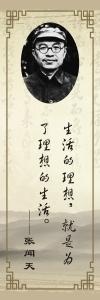 生活的理想,就是为
了理想的生活。
张闻天